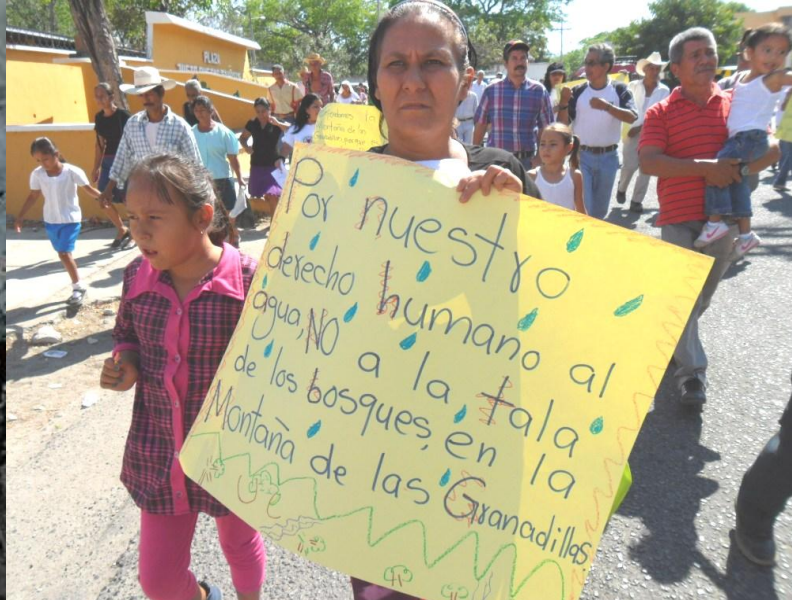 PLAZA
Por nuestro
derecho humano al
agua, NO a la tala
de los bosques, en la
Montaña de las Granadillas